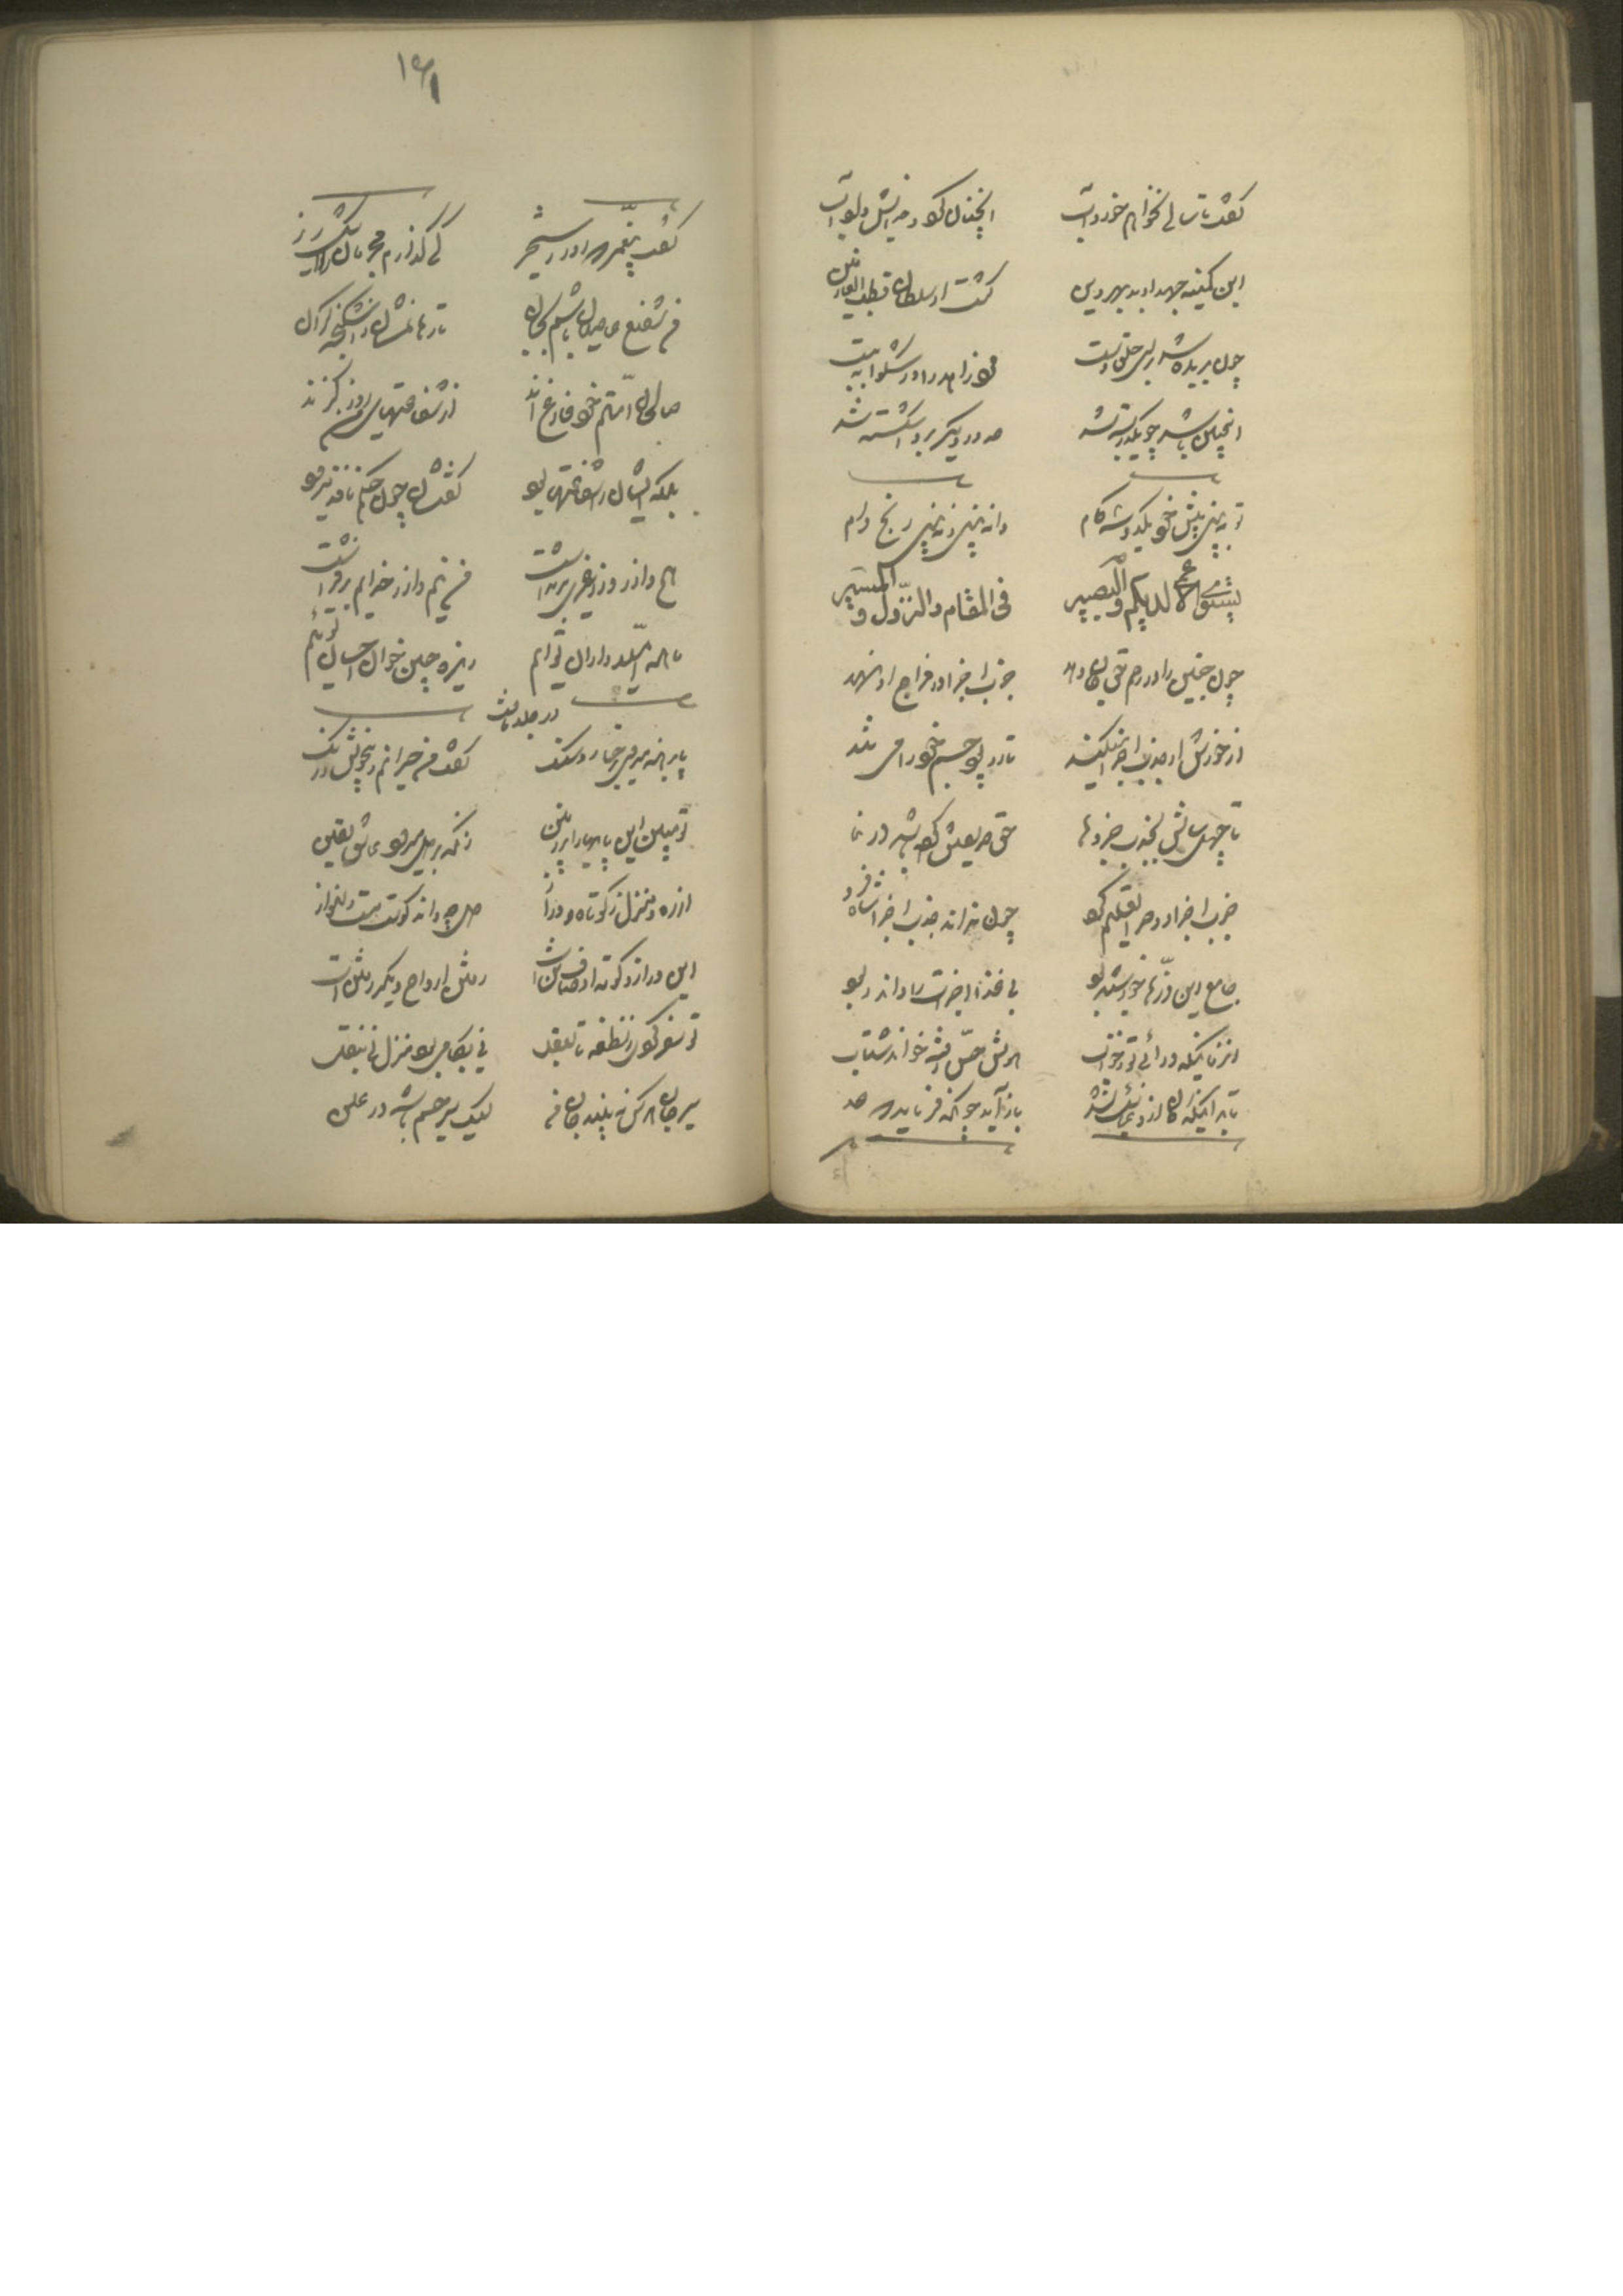 گفت تا سالی نخواهم خورد آب
آنچنان کرد و خدایش داد تاب
این کمینه جهد او بد بهر دین
گشت او سلطان و قطب العارفین
چون بریده شد برای حلق دست
مرد زاهد را در شکوی ببست
اینچنین باشد چو یکدر بسته شد
صد در دیگر برو اشکسته شد
تو نبینی پیش خود یکدو سه گام
دانه بینی و نبینی رنج دام
یستوی الاعمی لدیکم والبصیر
فی المقام والنزول والمسیر
چون جنین را در رحم حق جان دهد
جذب اجزا در مزاج او نهد
از خورش او جذب اجزا میکند
تار و پود جسم خود را می تند
تا چهل سالش بجذب جزوها
حق حریصش کرده باشد در نما
جذب اجزا روح را تعلیم کرد
چون نداند جذب اجزا شاه فرد
جامع این ذرّها خورشید بود
بی غذا اجزات را داند ربود
آنزمانیکه در آئی تو ز خواب
هوش و حس رفته را خواند شتاب
تا بدانی کان ازو غایب نشد
باز آید چون بفرماید که عد
۱۹۱
گفت پیغمبر که روز رستخیز
کی گذارم مجرمان را اشک ریز
من شفیع عاصیان باشم بجان
تا رهانمشان ز اشکنجه گران
صالحان امتم خود فارغ اند
از شفاعتهای من روز گزند
بلکه ایشان را شفاعتها بود
گفتشان چون حکم نافذ میرود
هیچ وازر وزر غیری برنداشت
من نیم وازر خدایم برفراشت
ما همه امیدواران توایم
ریزه چین خوان احسان توئیم
در جلد ثالث
پا برهنه میروی بر خار و سنگ
گفت من حیرانم و بیخویش و دنگ
تو مبین این پایها را بر زمین
زانکه بر دل میرود عاشق یقین
از ره و منزل ز کوتاه و دراز
دل چه داند کوست مست دلنواز
این دراز و کوته اوصاف تن است
رفتن ارواح دیگر رفتن است
تو سفر کردی ز نطفه تا بعقل
نی بگامی بود منزل نی بنقل
سیر جان هر کس نبیند جان من
لیک سیر جسم باشد در علن